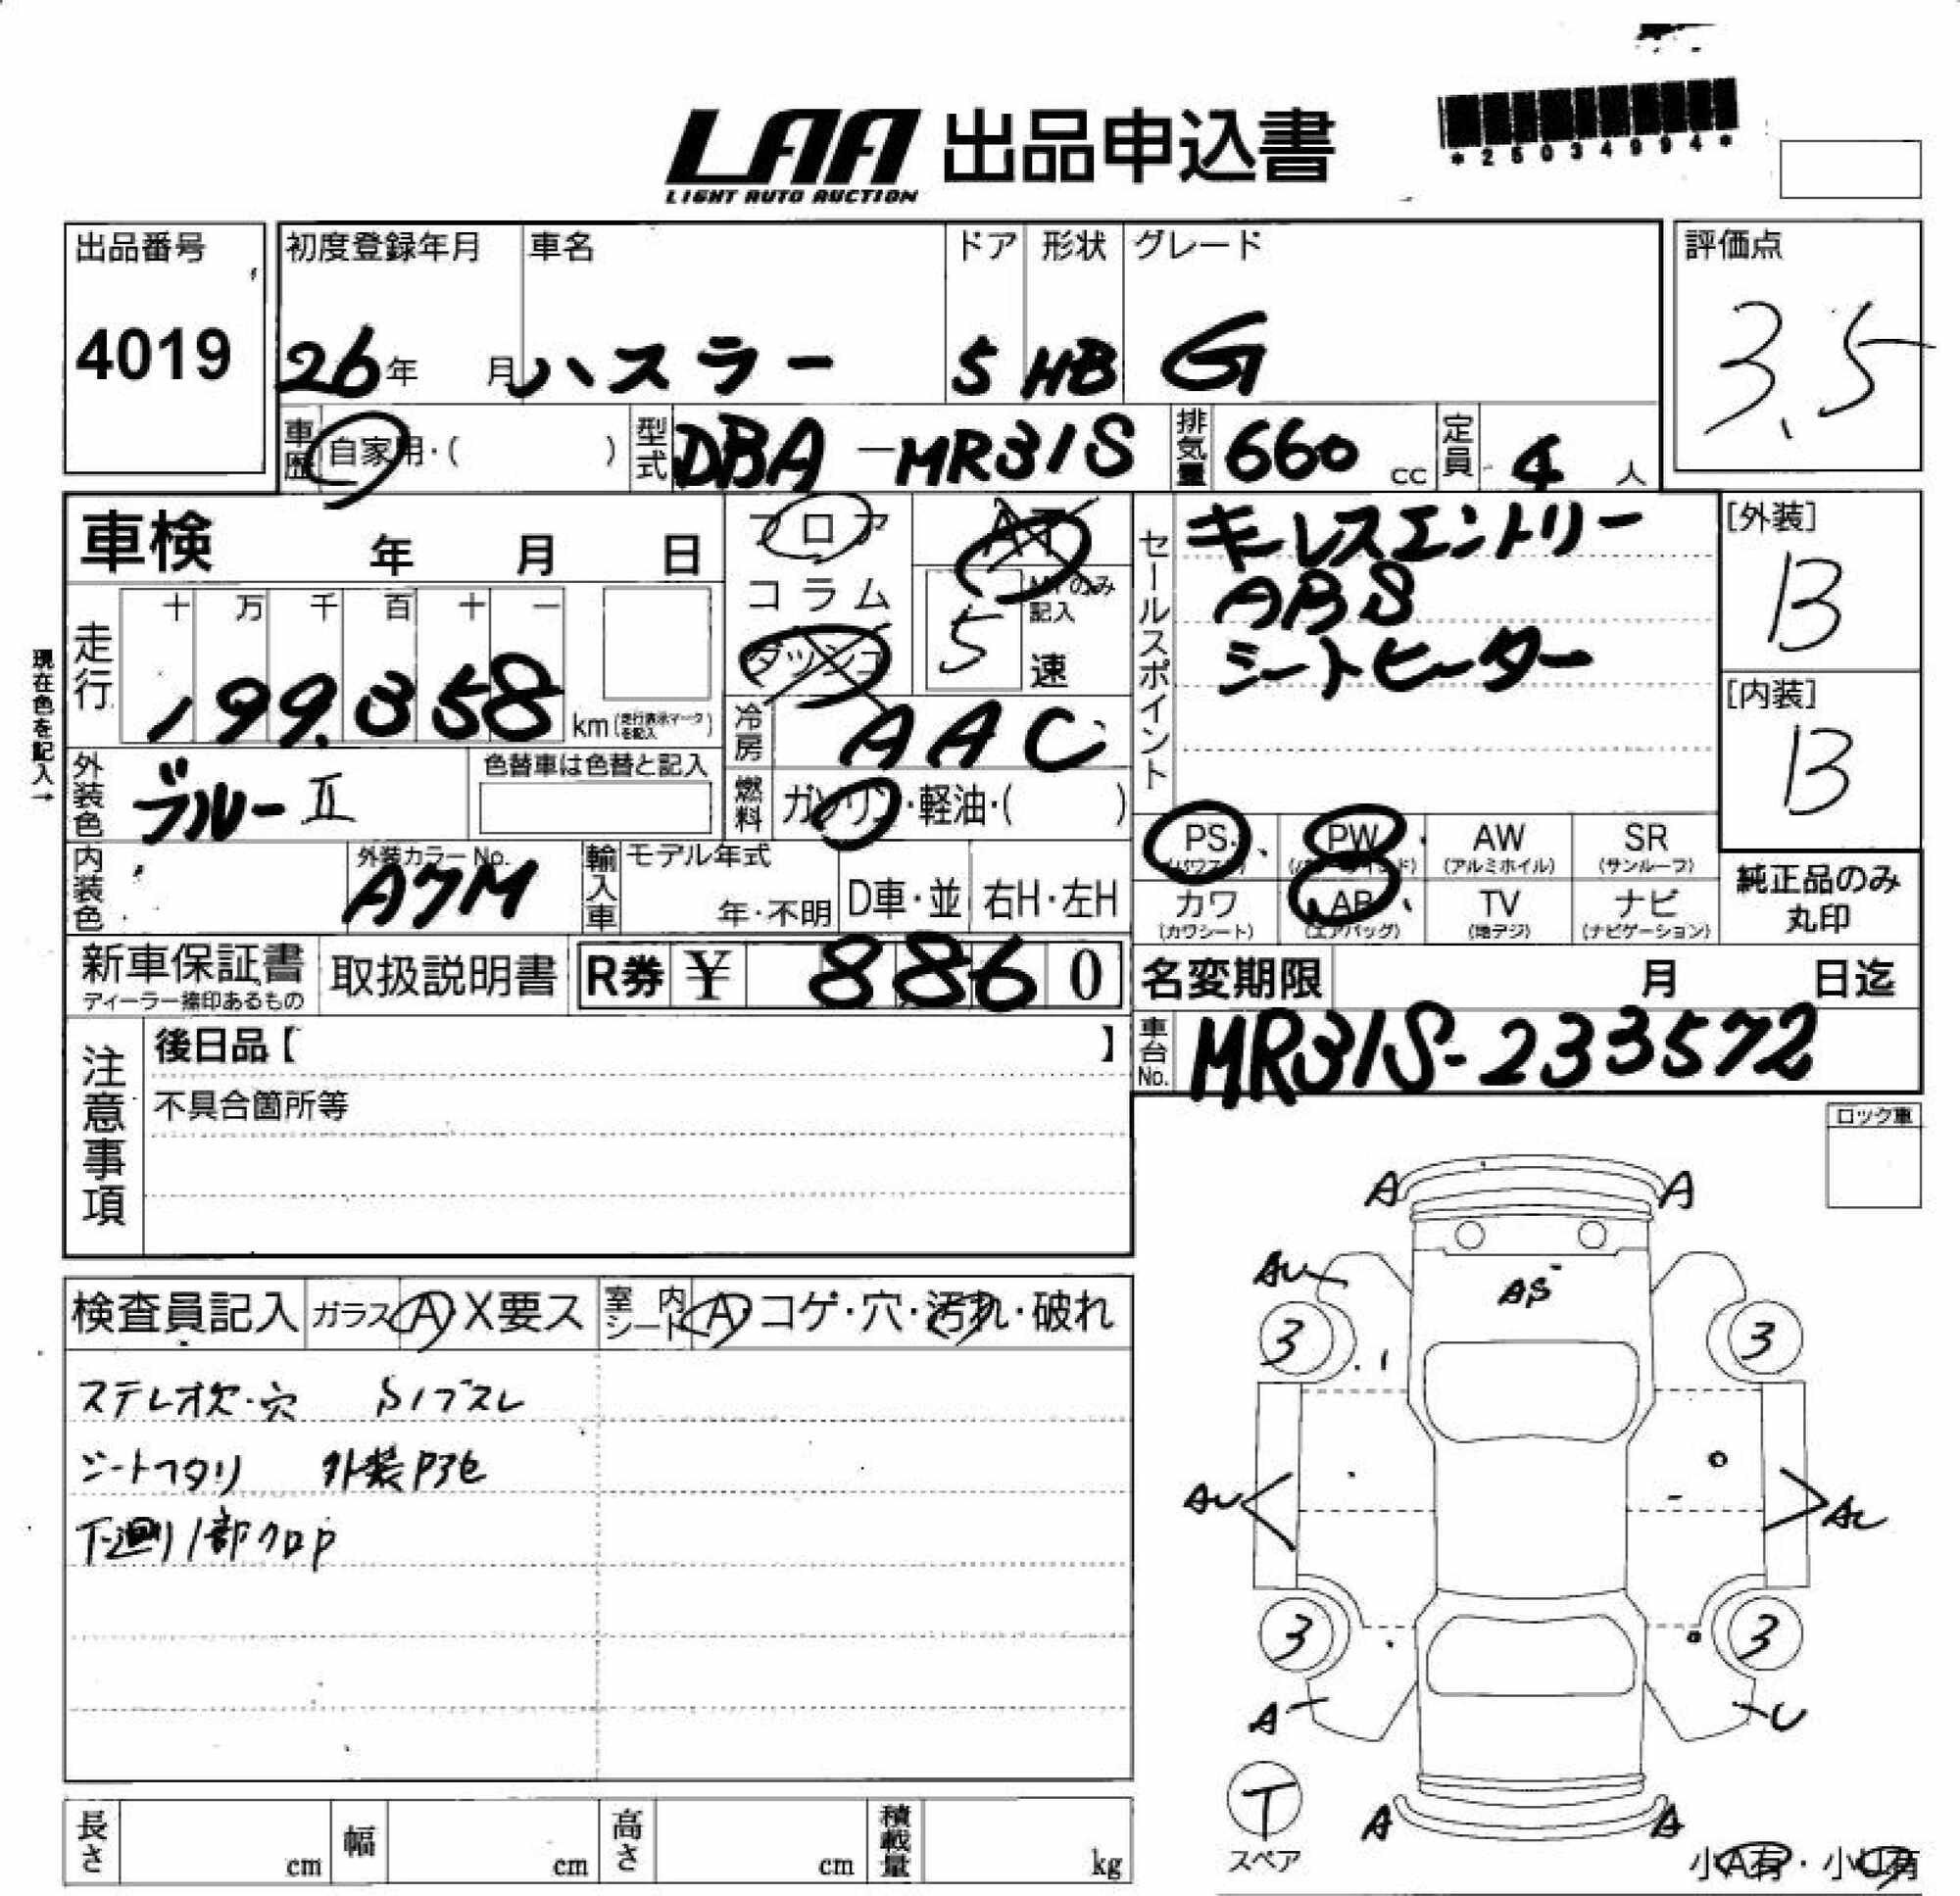 LAA 出品申込書
LIGHT AUTO AUCTION
*25034994*
出品番号
4019
初度登録年月 車名 ドア 形状 グレード
26年 月 ハスラー 5 HB G
評価点
3.5
車歴 自家用・( ) 型式 DBA-MR31S 排気量 660 cc 定員 4 人
車検 年 月 日
フロア AT
コラム MTのみ記入
ダッシュ 5 速
現在色を記入→
走行 十 万 千 百 十 一
199,358 km (走行表示マークを記入)
冷房 AAC
外装色 ブルーII 色替車は色替と記入
燃料 ガソリン・軽油・( )
セールスポイント
キーレスエントリー
ABS
シートヒーター
[外装]
B
[内装]
B
内装色 外装カラーNo. A7M 輸入車 モデル年式 年・不明 D車・並 右H・左H
PS (パワステ) PW (パワーウインド) AW (アルミホイル) SR (サンルーフ)
カワ (カワシート) AB (エアバッグ) TV (地デジ) ナビ (ナビゲーション)
純正品のみ
丸印
新車保証書 取扱説明書 R券 ¥ 8860
ディーラー捺印あるもの
名変期限 月 日迄
車台No. MR31S-233572
注意事項
後日品【 】
不具合箇所等
ロック車
検査員記入 ガラス A・X要ス 室内シート A・コゲ・穴・汚れ・破れ
ステレオ欠・穴
シートヘタリ 外装
下廻り1部クロP
A A
AU
3 3
AU
3 3
A U
T
スペア
A A
小A有・小U有
長さ cm 幅 cm 高さ cm 積載量 kg